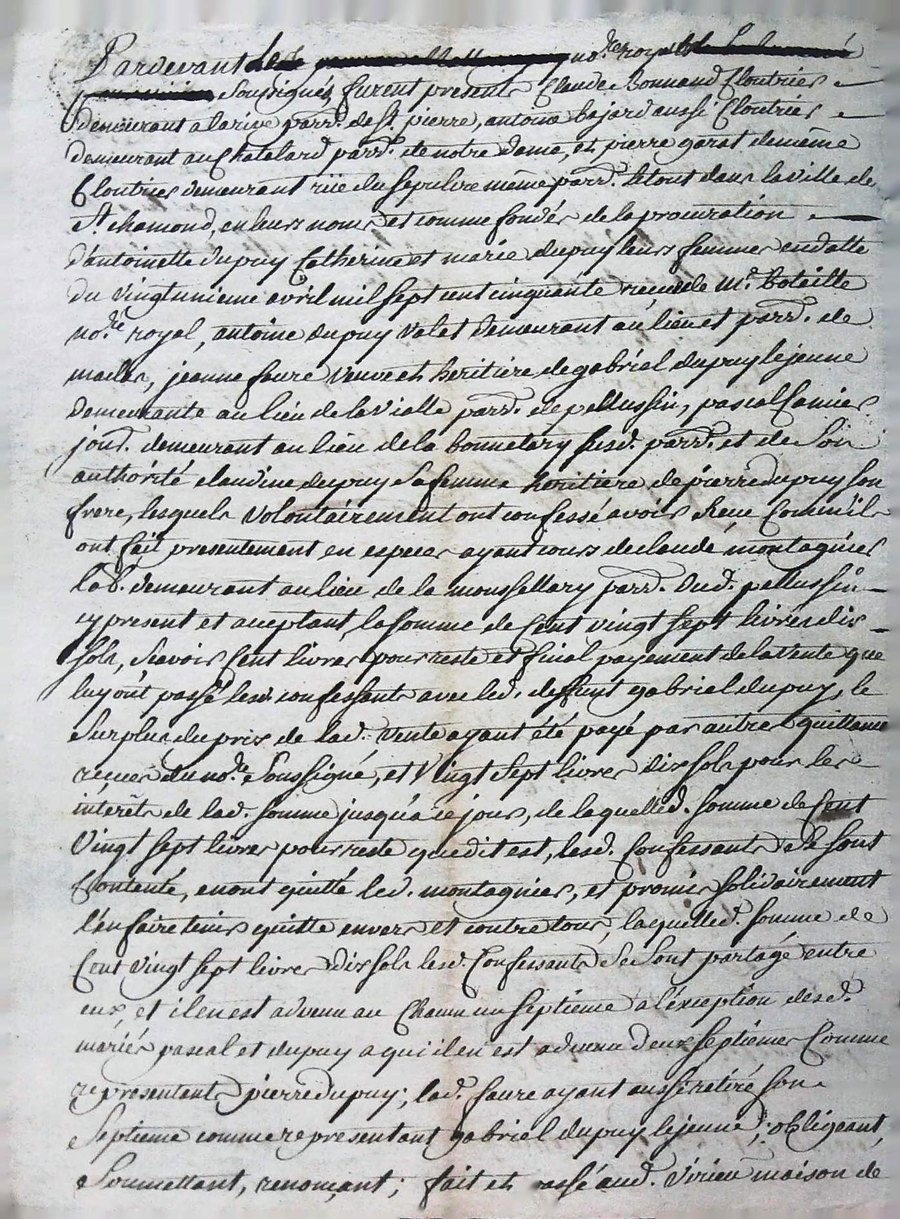 Pardevant no.re royal
Soussigné, furent present Claude Bonnand Cloutrier
demeurant a la rive parr. de St pierre, antoine bajard aussi Cloutrier
demeurant au Chatelard parr. de notre dame, et pierre garat de même
Cloutrier demeurant rüe du sepulcre même parr. le tout dans la ville de
St. chamond, en leurs noms et comme fondés de la procuration
d'antoinette dupuy Catherine et marie dupuy leurs femmes en datte
du vingtunieme avril mil sept cent cinquante recue de Mr. Bateille
no.re royal, antoine dupuy valet demeurant au lieu et parr. de
maclas, jeanne faure veuve et heritière de gabriel dupuy le jeune
demeurante au lieu de la vialle parr. de pellussin, pascal
jour. demeurant au lieu de la bonnetary susd. parr. et de son
authorité claudine dupuy sa femme héritière de pierre dupuy son
frere, lesquels volontairement ont confessé avoir Receu Comm'ils
ont fait presentement en especes ayant cours de claude montagnier
lab. demeurant au lieu de la moussellary parr. dud. pellussin
cy present et aceptant, la somme de Cent vingt sept livres dix
sols, scavoir Cent livres pour reste et final payement de la vente que
luy ont passé lesd. confessants avec led. deffunt gabriel dupuy, le
Surplus du prix de lad. vente ayant été payé par autre quittance
recue du no.re Soussigné, et vingt sept livres dix sols pour les
intérêts de lad. somme jusqu'a ce jour, de laquelle d. somme de Cent
vingt sept livres pour reste que dit est, lesd. Confessants se sont
Contenté, en ont quitté led. montagnier, et promis solidairement
l'en faire tenir quitte envers et contre tous, laquelle d. somme de
Cent vingt sept livres dix sols lesd. Confessants se sont partagé entre
eux, et il en est advenu au Chacun un septieme a l'éxception desd.
mariés pascal et dupuy a qui il en est advenu deux septiemes Comme
representants pierre dupuy; lad. faure ayant aussi retiré son
Septieme comme representant gabriel dupuy le jeune; obligeant,
Soumettant, renonçant; fait et passé aud. virieu maison de